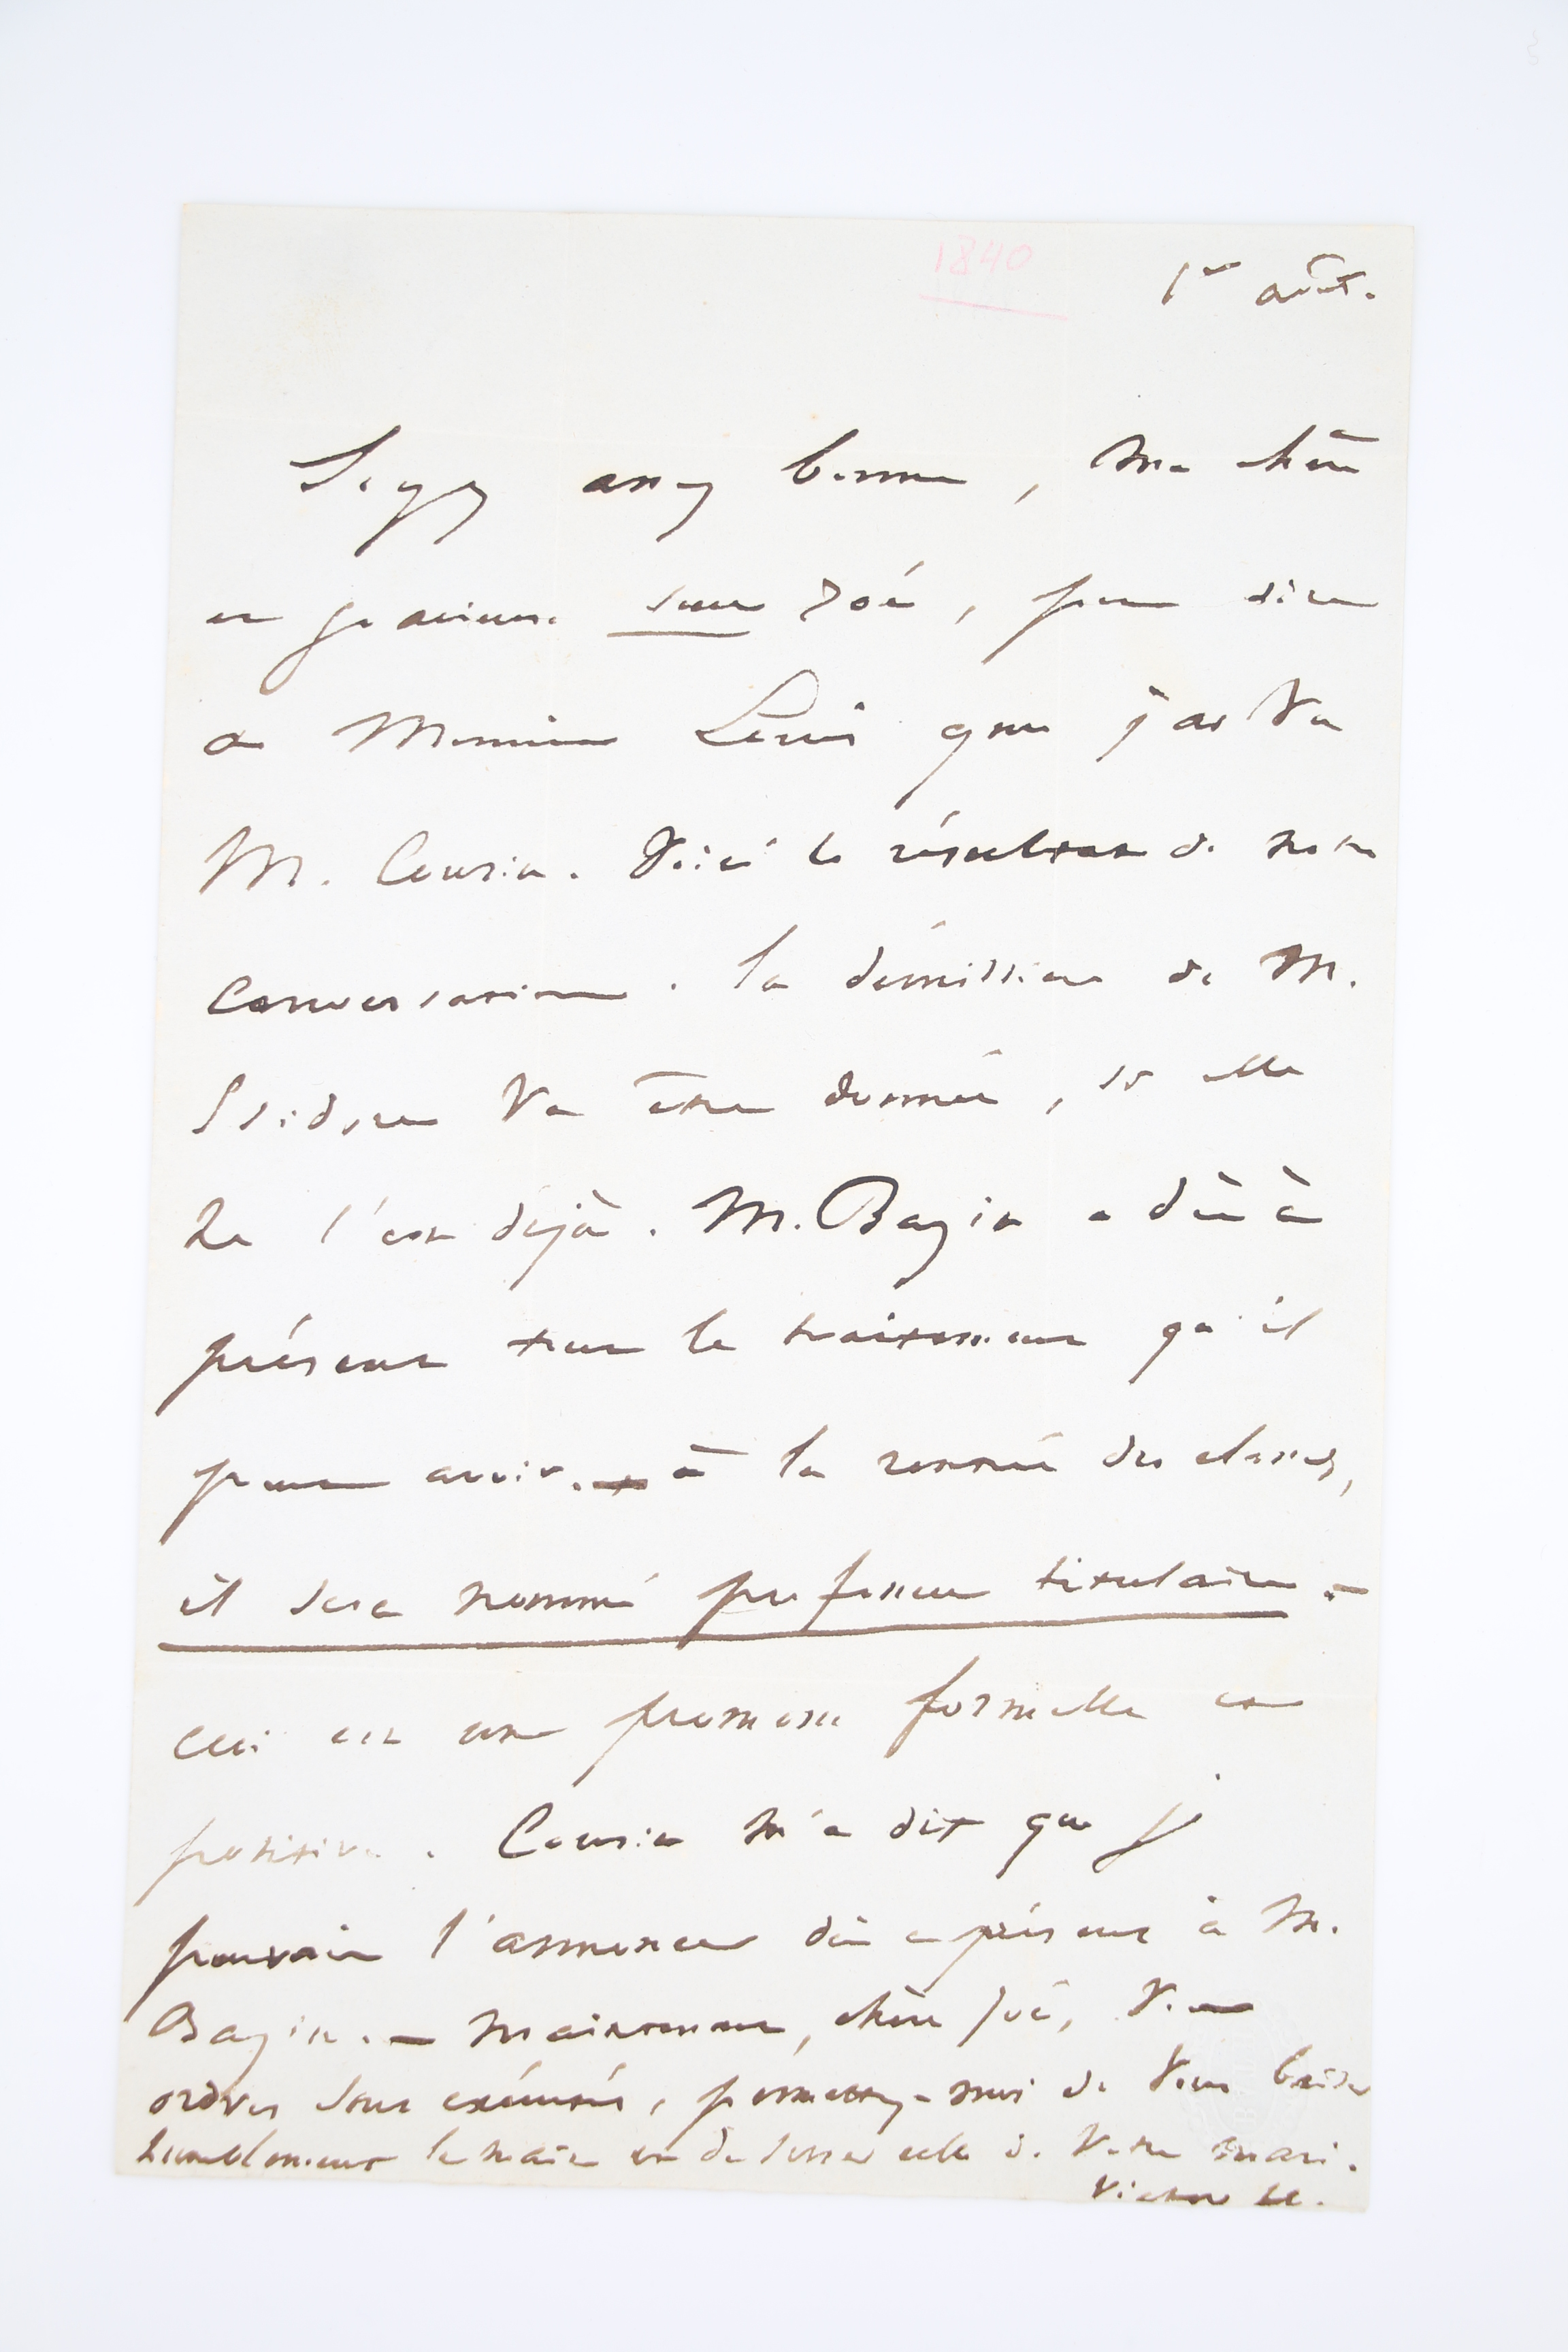 1840
1er août.
Soyez assez bonne, ma chère
et gracieuse sœur Zoé, pour dire
à Monsieur Louis que j'ai vu
M. Cousin. Voici le résultat de notre
conversation. la démission de M.
Isidore va être donnée, si elle
ne l'est déjà. M. Bazin a dès à
présent tout le traitement qu'il
peut avoir. à la rentrée des classes,
il sera nommé professeur titulaire. —
ceci est une promesse formelle et
positive. Cousin m'a dit que je
pouvais l'annoncer dès à présent à M.
Bazin. — Maintenant, chère Zoé, vos
ordres sont exécutés, permettez-moi de vous baiser
humblement la main et de serrer celle de votre mari.
Victor H.